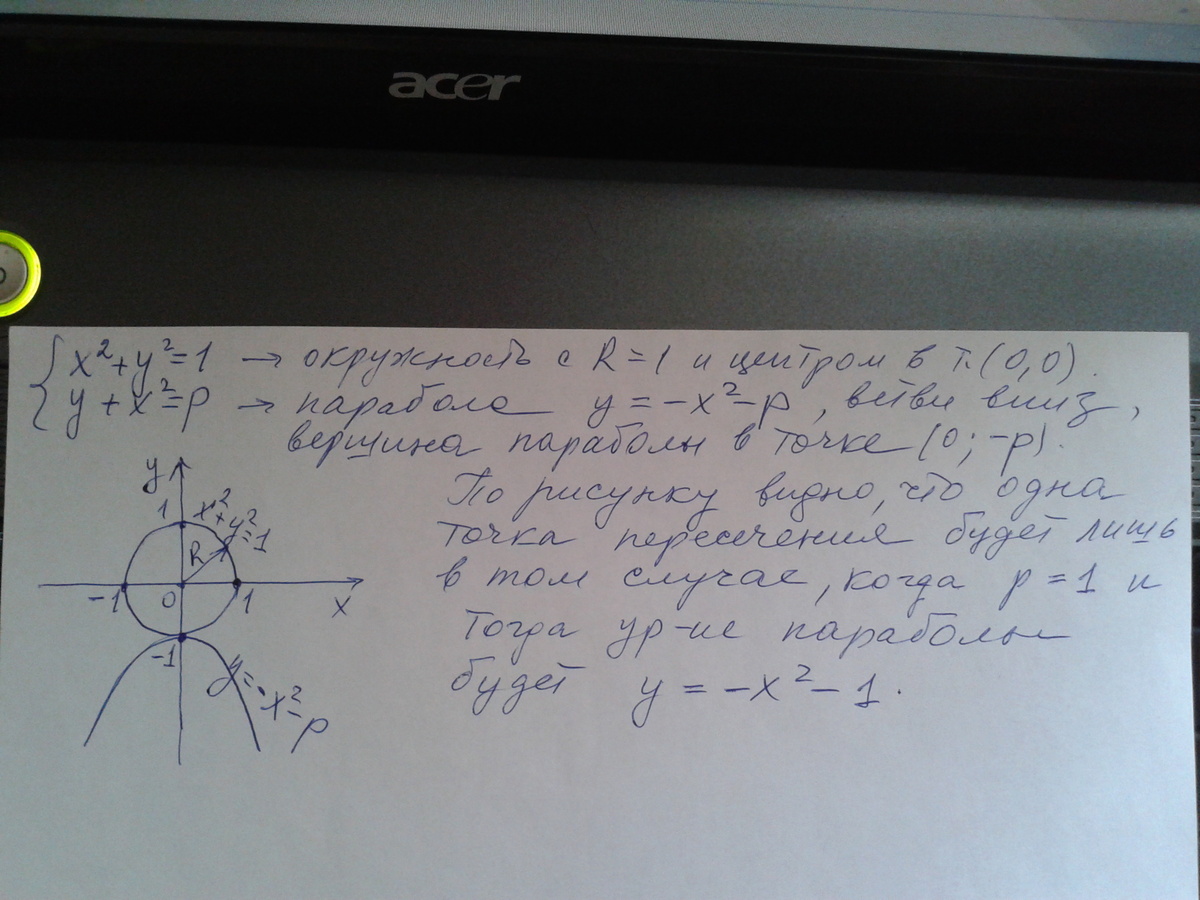 acer
{ x²+y²=1 → окружность с R=1 и центром в т.(0,0).
y+x²=p → парабола y=-x²-p, ветви вниз,
вершина параболы в точке (0;-p).
y
1
x²+y²=1
R
-1
0
1
x
-1
y=-x²-p
По рисунку видно, что одна
точка пересечения будет лишь
в том случае, когда p=1 и
тогда ур-ие параболы
будет y=-x²-1.